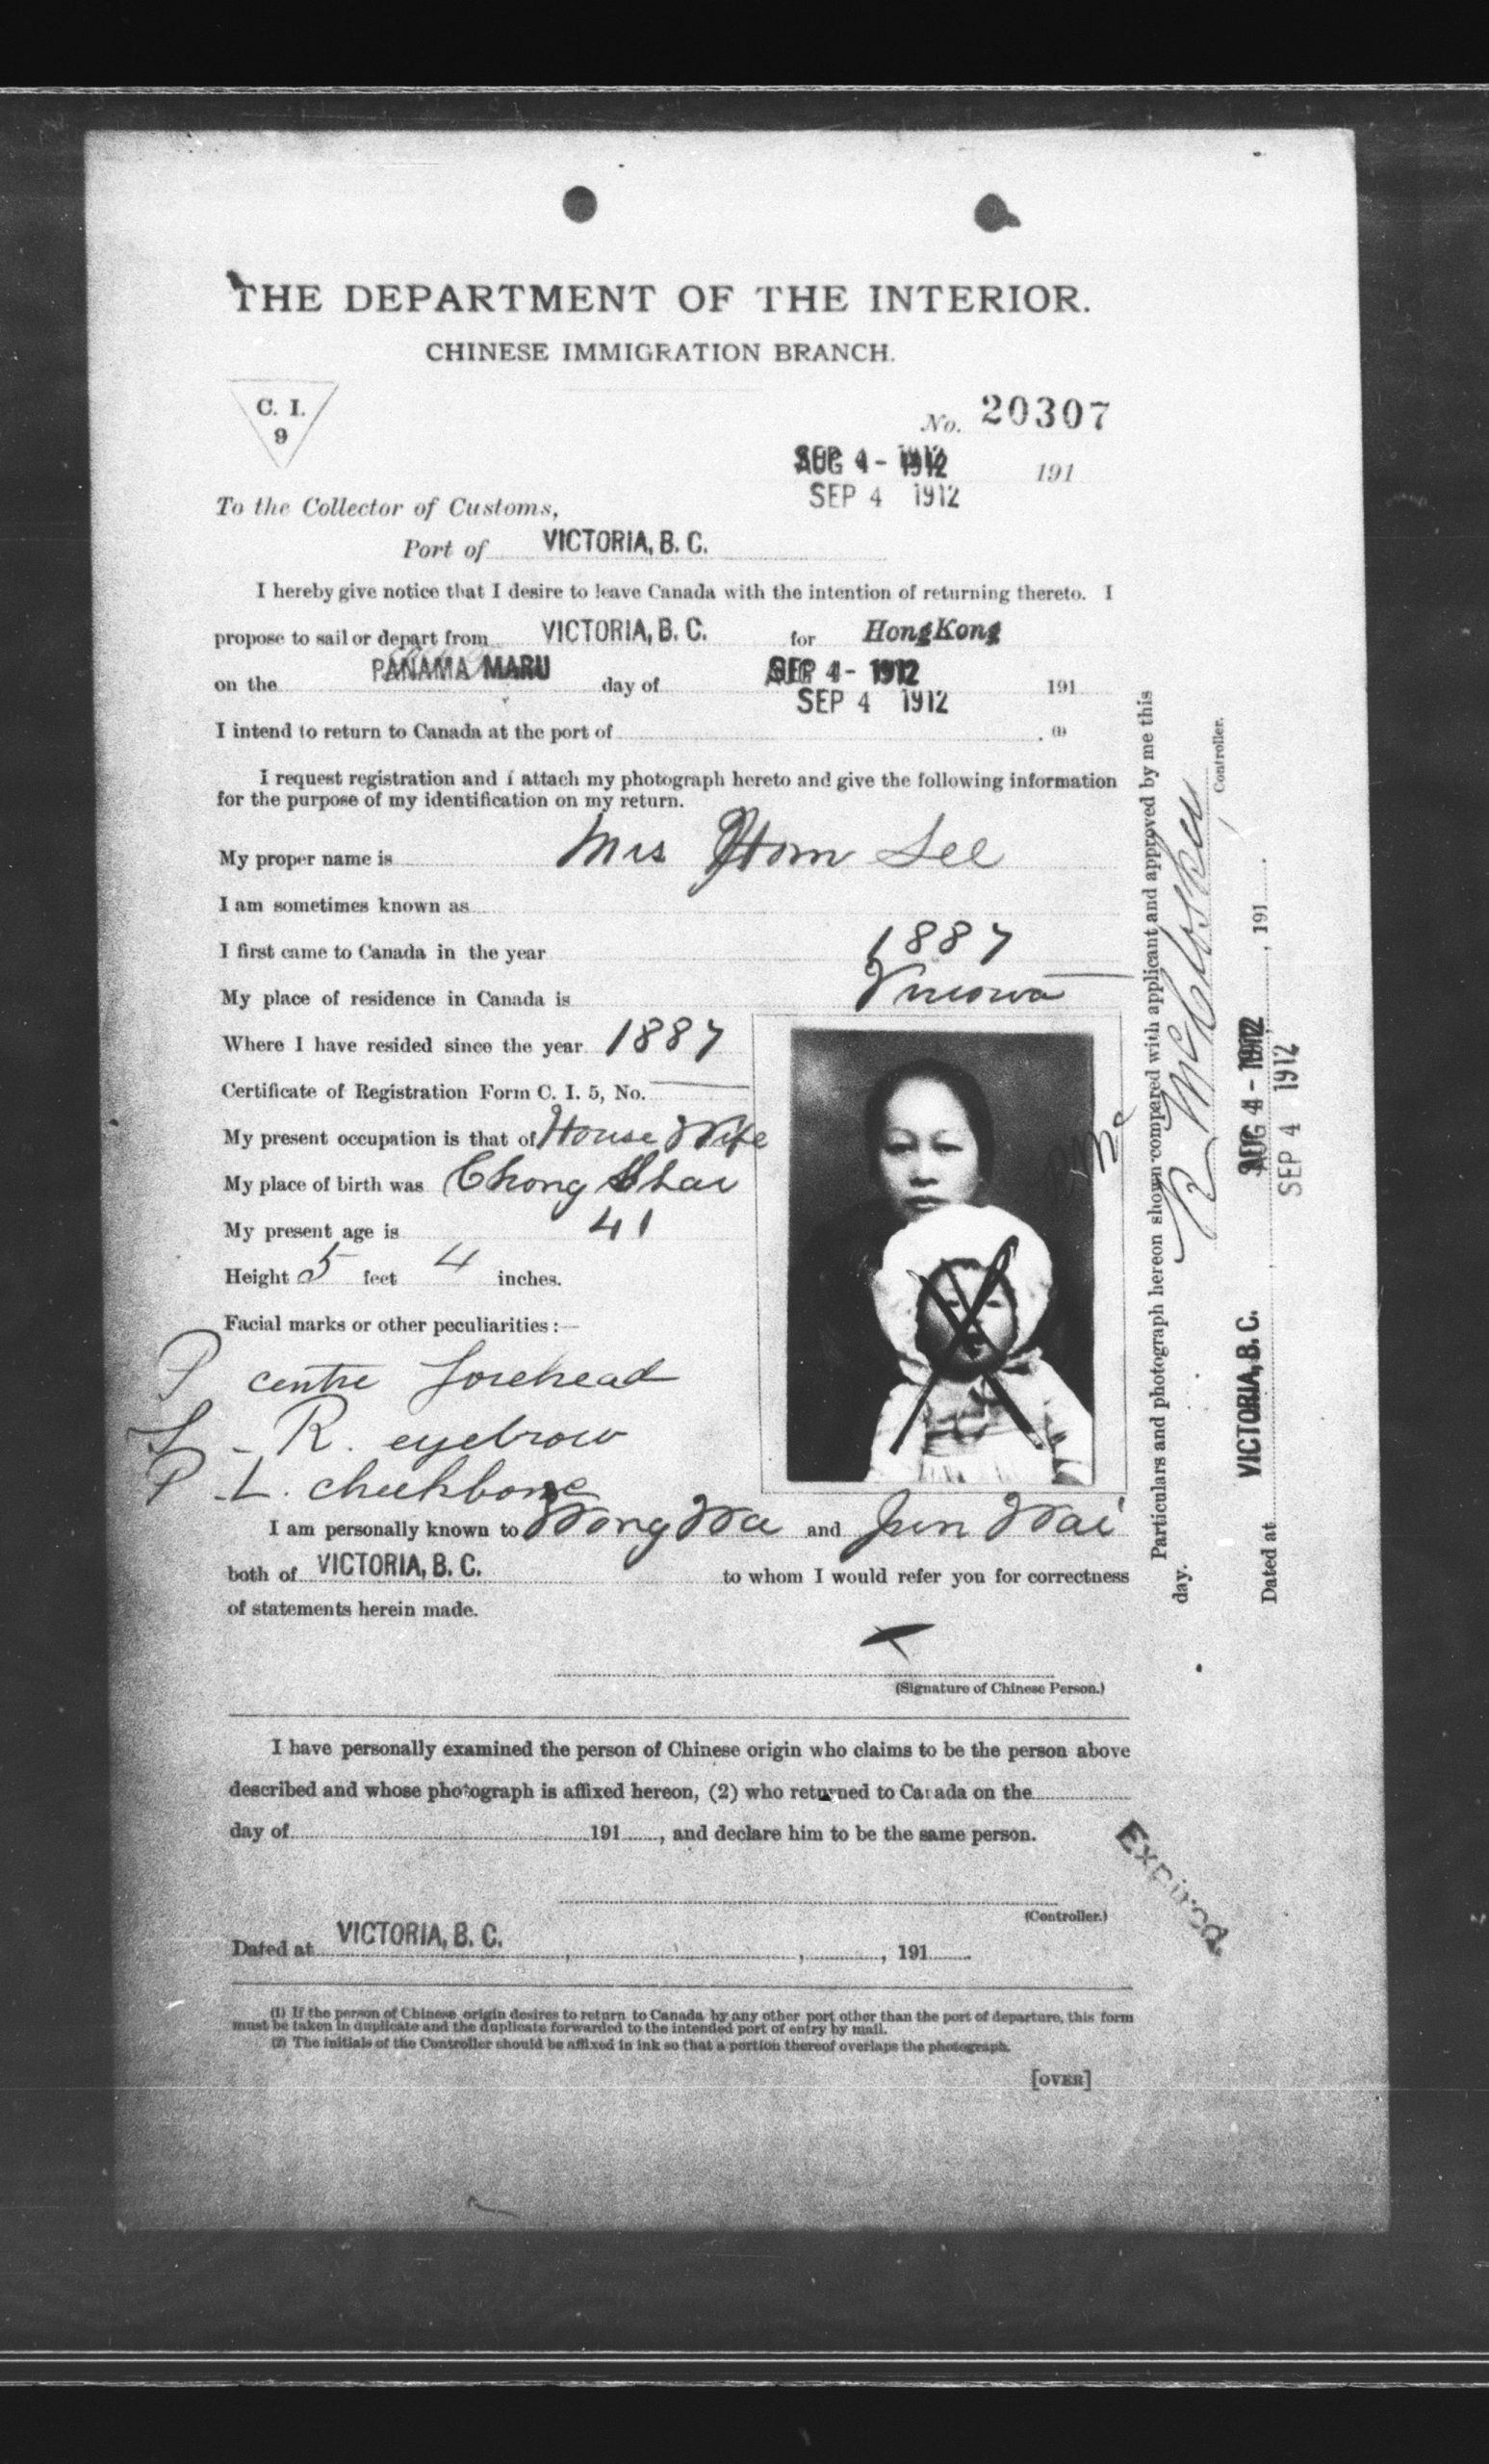 THE DEPARTMENT OF THE INTERIOR.
CHINESE IMMIGRATION BRANCH.
C. I.
9
No. 20307
AUG 4 - 1912 191
SEP 4 1912
To the Collector of Customs,
Port of VICTORIA, B. C.
I hereby give notice that I desire to leave Canada with the intention of returning thereto. I
propose to sail or depart from VICTORIA, B. C. for HongKong
on the PANAMA MARU day of SEP 4 - 1912 191
SEP 4 1912
I intend to return to Canada at the port of . (1)
I request registration and I attach my photograph hereto and give the following information
for the purpose of my identification on my return.
My proper name is Mrs Hom Lee
I am sometimes known as
I first came to Canada in the year 1887
My place of residence in Canada is
Where I have resided since the year 1887
Certificate of Registration Form C. I. 5, No.
My present occupation is that of House Wife
My place of birth was Chong Shai
My present age is 41
Height 5 feet 4 inches.
Facial marks or other peculiarities :—
P centre forehead
S - R. eyebrow
P - L. cheekbone
I am personally known to Wong Wa and Jun Wai
both of VICTORIA, B. C. to whom I would refer you for correctness
of statements herein made.
(Signature of Chinese Person.)
I have personally examined the person of Chinese origin who claims to be the person above
described and whose photograph is affixed hereon, (2) who returned to Canada on the
day of 191 , and declare him to be the same person.
(Controller.)
Dated at VICTORIA, B. C. , , , 191
(1) If the person of Chinese origin desires to return to Canada by any other port other than the port of departure, this form
must be taken in duplicate and the duplicate forwarded to the intended port of entry by mail.
(2) The initials of the Controller should be affixed in ink so that a portion thereof overlaps the photograph.
[OVER]
Expired.
Particulars and photograph hereon shown compared with applicant and approved by me this
day.
Controller.
Dated at VICTORIA, B. C. AUG 4 - 1912 , 191
SEP 4 1912